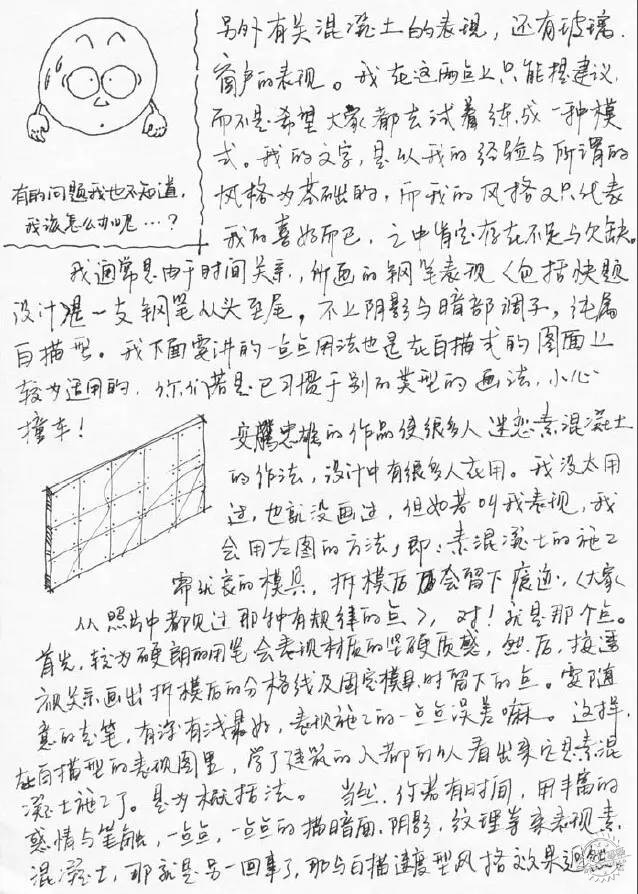 有的问题我也不知道,
我该怎么办呢…?
另外有关混凝土的表现，还有玻璃.
窗户的表现。我在这两点上只能提建议,
而不是希望大家都去试着练成一种模
式。我的文字,是以我的经验与所谓的
风格为基础的,而我的风格又只代表
我的喜好而已,之中肯定存在不足与欠缺。
我通常是由于时间关系,所画的钢笔表现(包括快题
设计)是一支钢笔从头至尾,不上阴影与暗部调子,纯属
白描型。我下面要讲的一点点用法也是在白描式的图面上
较为适用的,你们若是已习惯于别的类型的画法,小心
撞车!
安騰忠雄的作品使很多人迷恋素混凝土
的作法,设计中有很多人在用。我没太用
过,也就没画过,但如若叫我表现,我
会用左图的方法,即:素混凝土的施工
需优良的模具,拆模后会留下痕迹,(大家
从照片中都见过那种有规律的点),对!就是那个点。
首先,较为硬朗的用笔会表现材质的坚硬质感,然后,按透
视关系画出拆模后的分格线及固定模具时留下的点。要随
意的去笔,有深有浅最好,表现施工的一点点误差嘛。这样,
在白描型的表现图里,学了建筑的人都可以看出来它是素混
凝土施工了。是为概括法。 当然,你若有时间,用丰富的
感情与笔触,一点点,一点点的描暗面,阴影,纹理等来表现素
混凝土,那就是另一回事了,那与白描速度型风格效果迥然